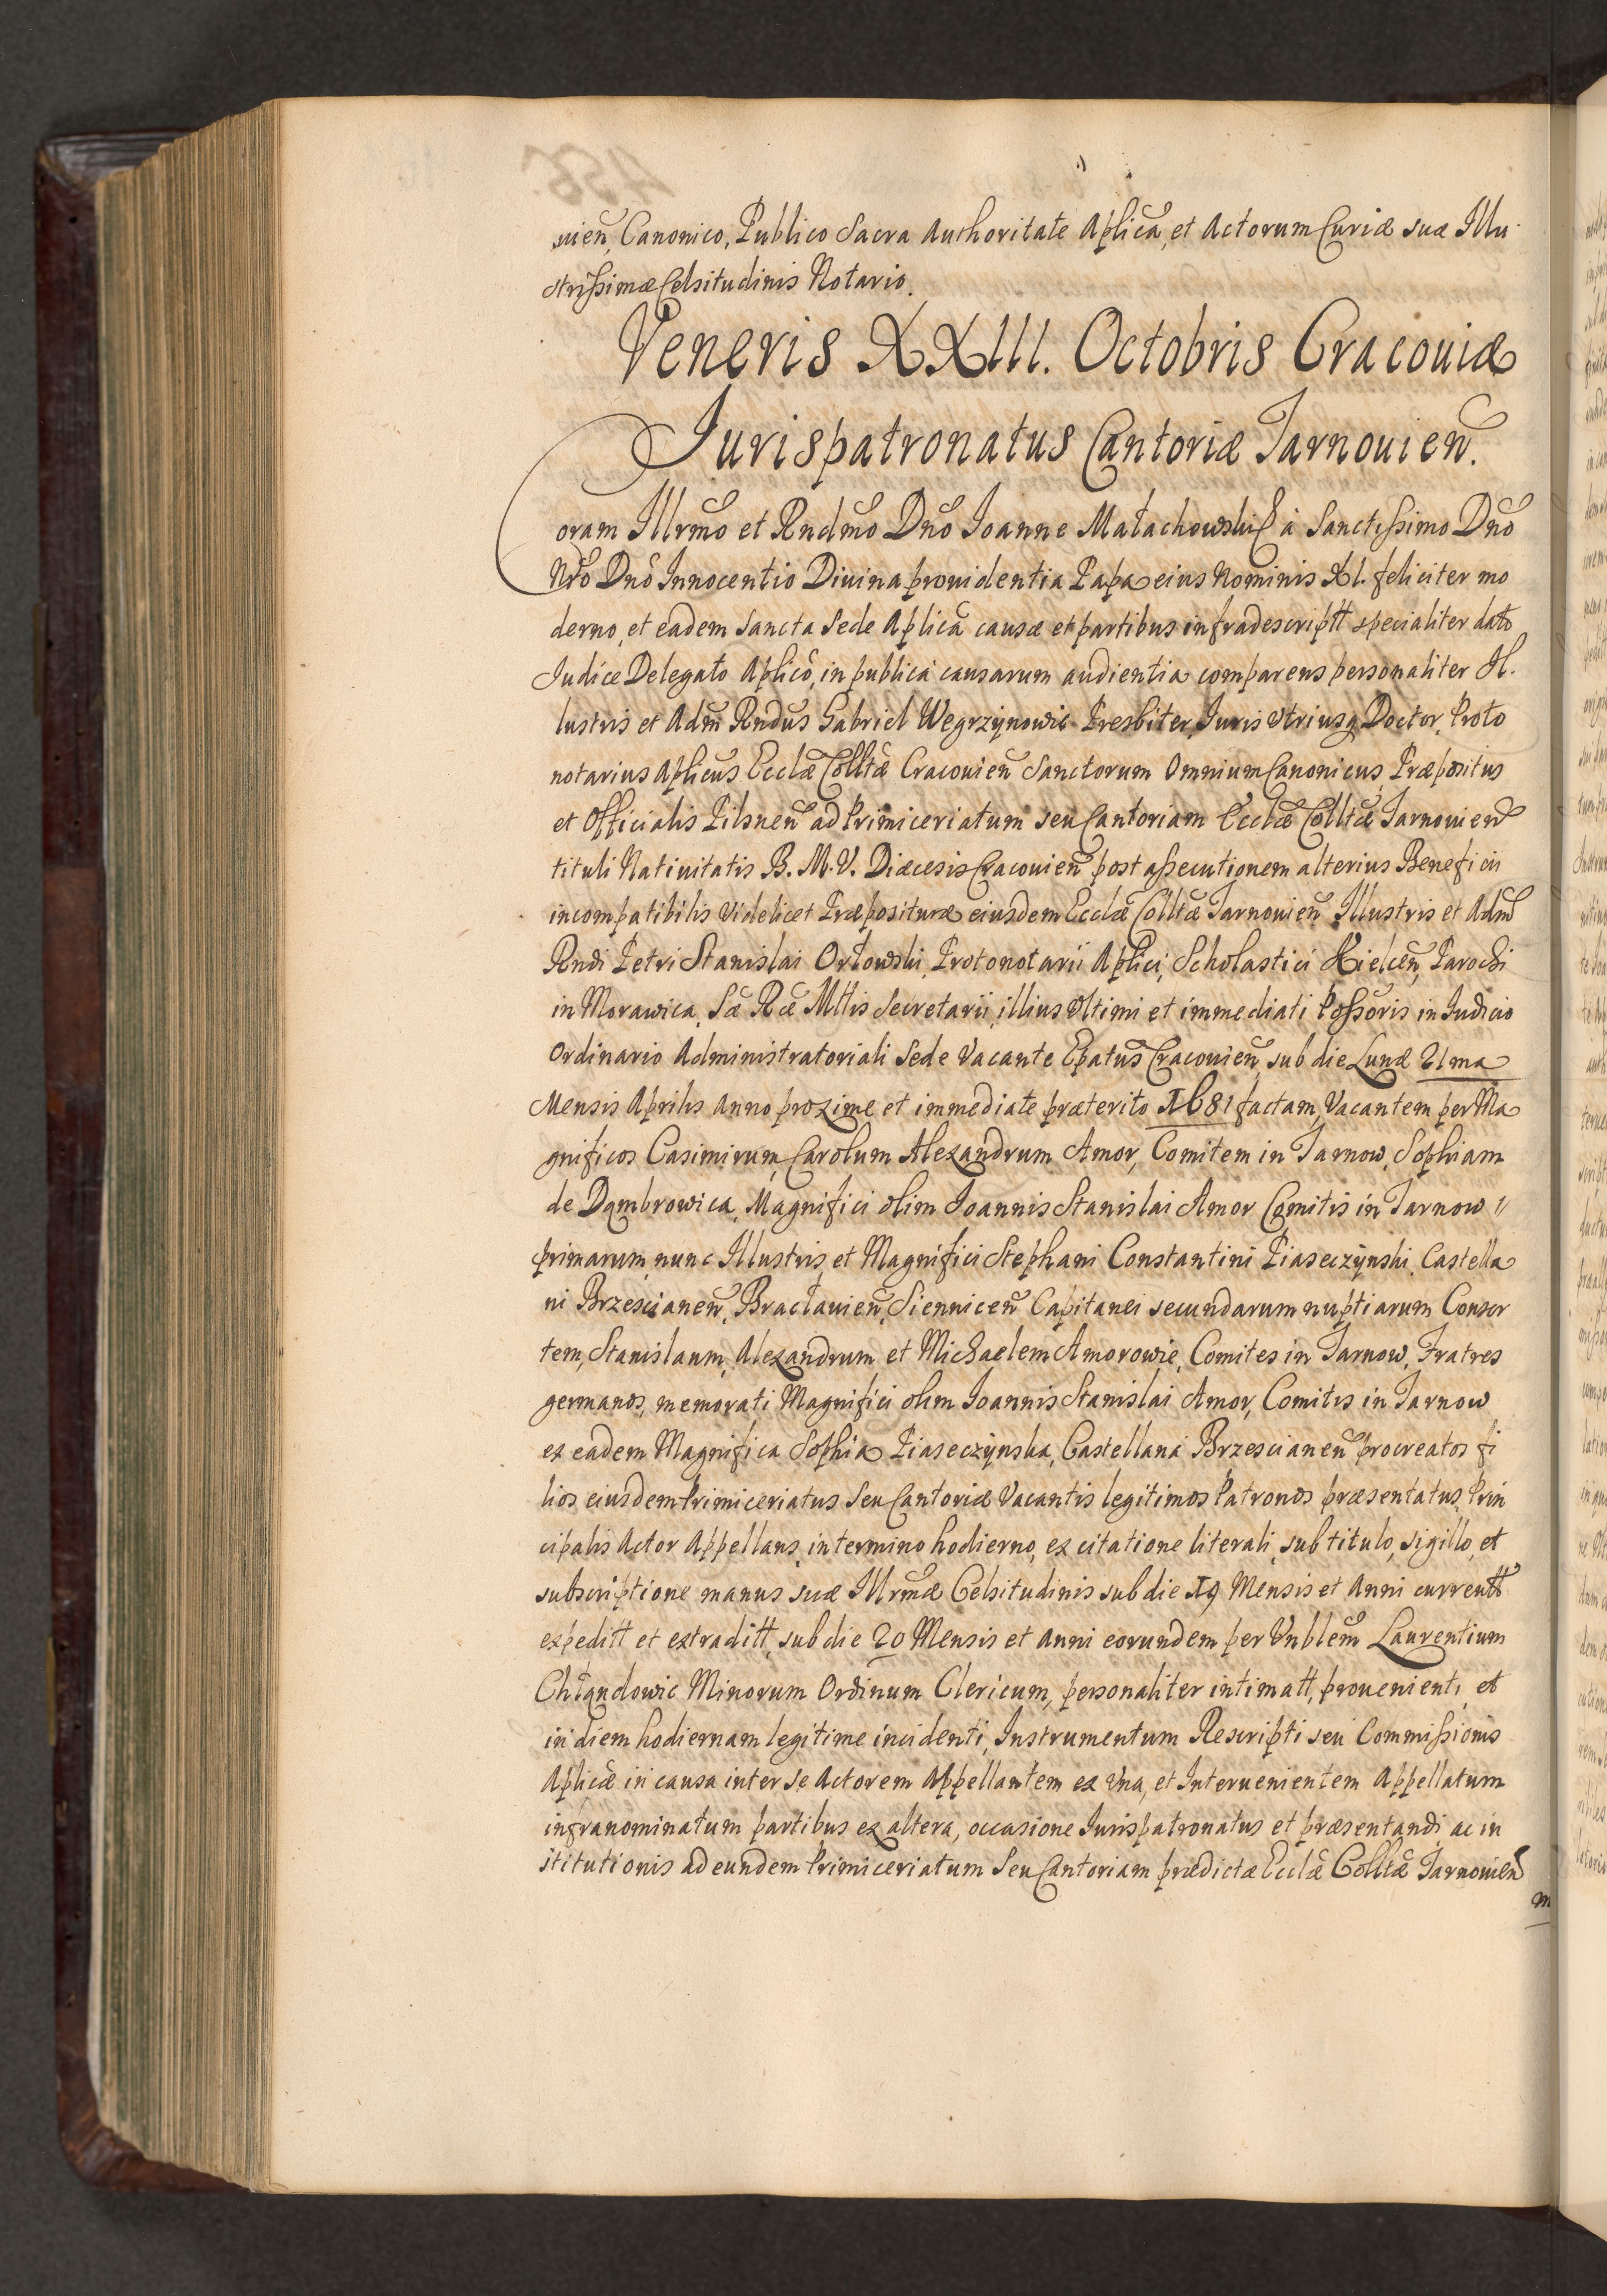 uien̄, Canonico, Publico Sacra Authoritate Aplicā, et Actorum Curiæ suæ Illu
strissimæ Celsitudinis Notario.
Veneris XXIII. Octobris Cracouiæ
Jurispatronatus Cantoriæ Tarnouien̄.
Coram Illrmō et Rndmō Dnō Ioanne Małachowski à Sanctissimo Dnō
Nrō Dnō Innocentio Diuina prouidentia Papa eius Nominis XI. feliciter mo
derno, et eadem Sancta Sede Aplicā causæ et partibus infradescriptt specialiter datō
Iudice Delegato Aplicō, in publica causarum audientia comparens personaliter Il
lustris et Adm̄ Rndus Gabriel Wegrzynowic Presbiter, Iuris Vtriusq Doctor, Proto
notarius Aplicus Ecclæ Colltæ Cracouien̄ Sanctorum Omnium Canonicus, Præpositus
et Officialis Pilsnen̄ ad Primiceriatum seu Cantoriam Ecclæ Colltæ Tarnouien̄
tituli Natiuitatis B. M. V. Diæcesis Cracouien̄ post assecutionem alterius Beneficii
incompatibilis videlicet Præposituræ eiusdem Ecclæ Colltæ Tarnouien̄ Illustris et Adm̄
Rndi Petri Stanislai Orłowski, Protonotarii Aplici, Scholastici Kielcen̄, Parochi
in Morawica, Sæ Ræ Mttis Secretarii, illius vltimi et immediati Possoris in Iudicio
Ordinario Administratoriali Sede Vacante Epatus Cracouien̄, sub die Lunæ 21ma
Mensis Aprilis anno proxime et immediate præterito 1681 factam, Vacantem per Ma
gnificos Casimirum, Carolum Alexandrum Amor, Comitem in Tarnow, Sophiam
de Dąmbrowica, Magnifici olim Ioannis Stanislai Amor Comitis in Tarnow
primarum, nunc Illustris et Magnifici Stephani Constantini Piaseczynski, Castella
ni Brzescianen̄, Bractauien̄, Siennicen̄ Capitanei secundarum nuptiarum Consor
tem, Stanislaum, Alexandrum et Michaelem Amorowie, Comites in Tarnow, Fratres
germanos, memorati Magnifici olim Ioannis Stanislai Amor, Comitis in Tarnow
ex eadem Magnifica Sophia Piaseczynska, Castellana Brzescianen̄ procreatos fi
lios eiusdem Primiceriatus Seu Cantoriæ Vacantis legitimos Patronos præsentatus, Prin
cipalis Actor Appellans, in termino hodierno, ex citatione literali, sub titulo, sigillo, et
subscriptione manus suæ Illrmæ Celsitudinis sub die 19 Mensis et Anni currentt
expeditt et extraditt, sub die 20 Mensis et Anni eorundem per Vnblem̄ Laurentium
Minorum Ordinum Clericum, personaliter intimatt, prouenienti, et
in diem hodiernam legitime incidenti, Instrumentum Rescripti seu Commissionis
Aplicæ in causa inter se Actorem Appellantem ex vna, et Interuenientem Appellatum
infranominatum partibus ex altera, occasione Iurispatronatus et præsentandi, ac in
stitutionis ad eundem Primiceriatum Seu Cantoriam prædictæ Ecclæ Colltæ Tarnouien̄